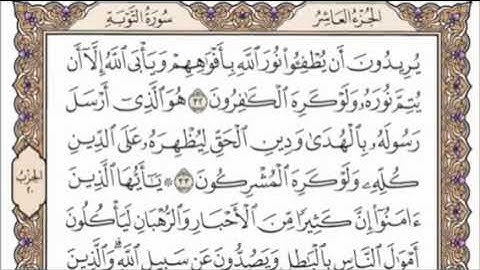 الجزء العاشر
سورة التوبة
يُرِيدُونَ أَن يُطْفِـُٔوا۟ نُورَ ٱللَّهِ بِأَفْوَٰهِهِمْ وَيَأْبَى ٱللَّهُ إِلَّآ أَن
يُتِمَّ نُورَهُۥ وَلَوْ كَرِهَ ٱلْكَـٰفِرُونَ ٣٢ هُوَ ٱلَّذِىٓ أَرْسَلَ
رَسُولَهُۥ بِٱلْهُدَىٰ وَدِينِ ٱلْحَقِّ لِيُظْهِرَهُۥ عَلَى ٱلدِّينِ
كُلِّهِۦ وَلَوْ كَرِهَ ٱلْمُشْرِكُونَ ٣٣ يَـٰٓأَيُّهَا ٱلَّذِينَ
ءَامَنُوٓا۟ إِنَّ كَثِيرًا مِّنَ ٱلْأَحْبَارِ وَٱلرُّهْبَانِ لَيَأْكُلُونَ
أَمْوَٰلَ ٱلنَّاسِ بِٱلْبَـٰطِلِ وَيَصُدُّونَ عَن سَبِيلِ ٱللَّهِ ۗ وَٱلَّذِينَ
الحزب
٢٠